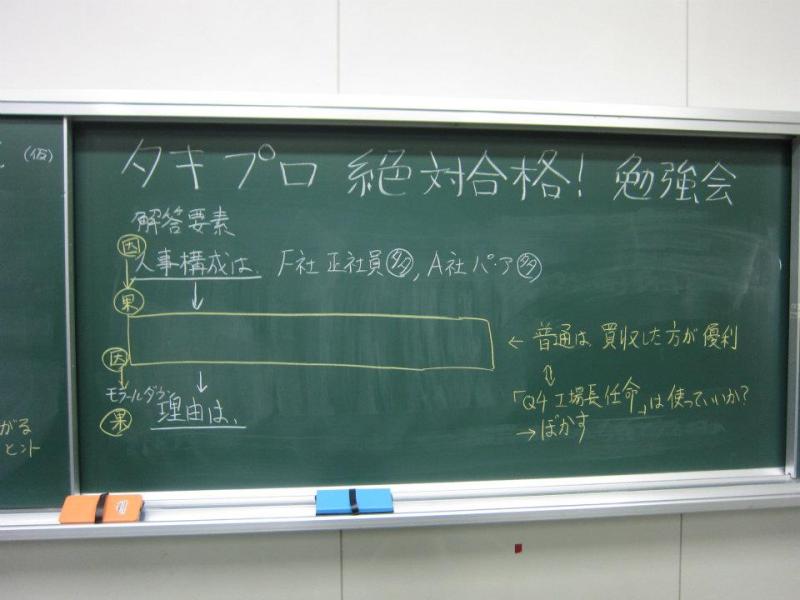 (仮)
タキプロ 絶対合格! 勉強会
解答要素
因
人事構成は、F社 正社員㊛, A社 パート㊛
果
← 普通は、買収した方が優利
因
モラールダウン
果
理由は、
「Q4 工場長任命」は使っていいか?
→ ぼかす
がる
ヒント